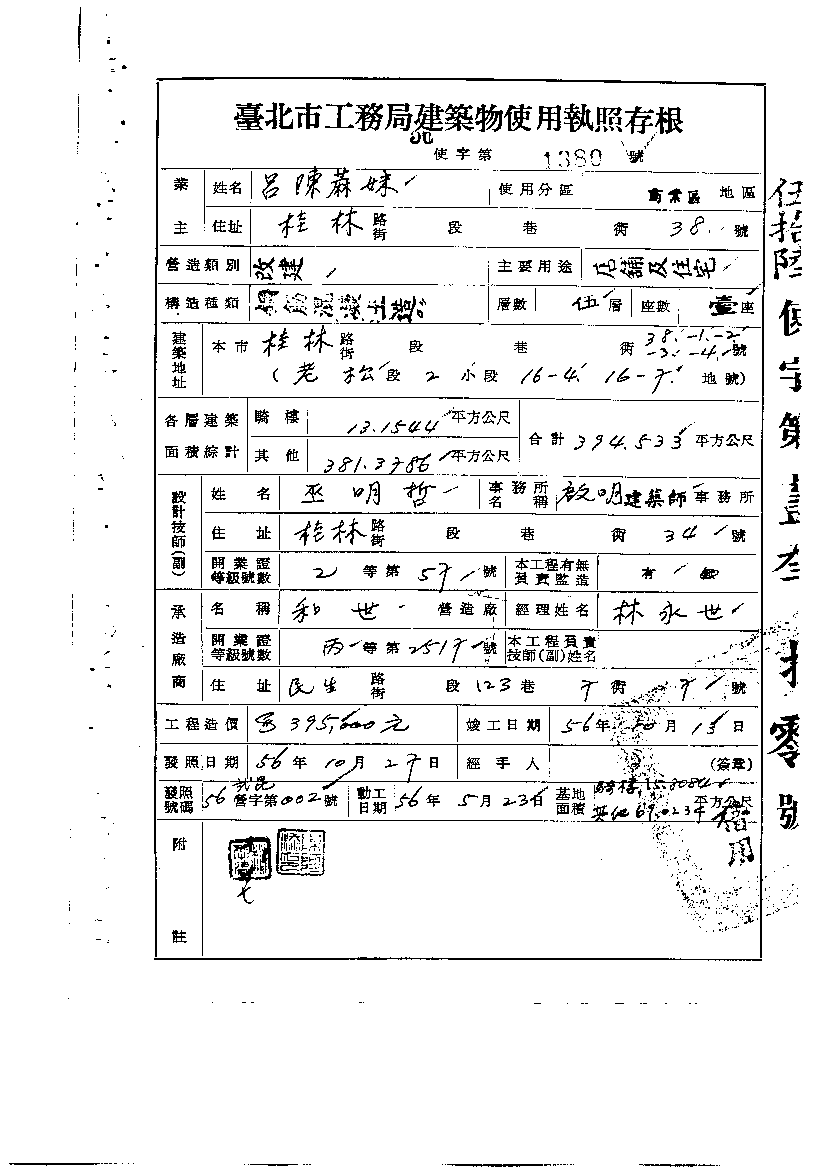 臺北市工務局建築物使用執照存根
使字第 1380 號
業主 姓名 呂陳蔴妹 使用分區 商業區 地區
住址 桂林 路街 段 巷 街 38 號
營造類別 改建 主要用途 店舖及住宅
構造種類 鋼筋混凝土造 層數 伍 層 座數 壹 座
建築地址 本市 桂林 路街 段 巷 街 38.-1.-2 -3.-4. 號
(老松 段 2 小段 16-4. 16-7. 地號)
各層建築面積綜計 騎樓 13.1544 平方公尺 合計 394.533 平方公尺
其他 381.3786 平方公尺
設計技師(副) 姓名 巫明哲 事務所名稱 啟明建築師 事務所
住址 桂林 路街 段 巷 街 34 號
開業證等級號數 2 等第 57 號 本工程有無負責監造 有
承造廠商 名稱 和世 營造廠 經理姓名 林永世
開業證等級號數 丙 等第 2517 號 本工程負責技師(副)姓名
住址 民生 路街 段 123 巷 7 街 7 號
工程造價 395,600元 竣工日期 56年 10月 15日
發照日期 56年 10月 27日 經手人 (簽章)
發照號碼 56 營字第002號 動工日期 56年 5月 23日 基地面積 騎樓15.8084 其他69.0234 平方公尺
附註
伍拾陸使字第壹叁 零號